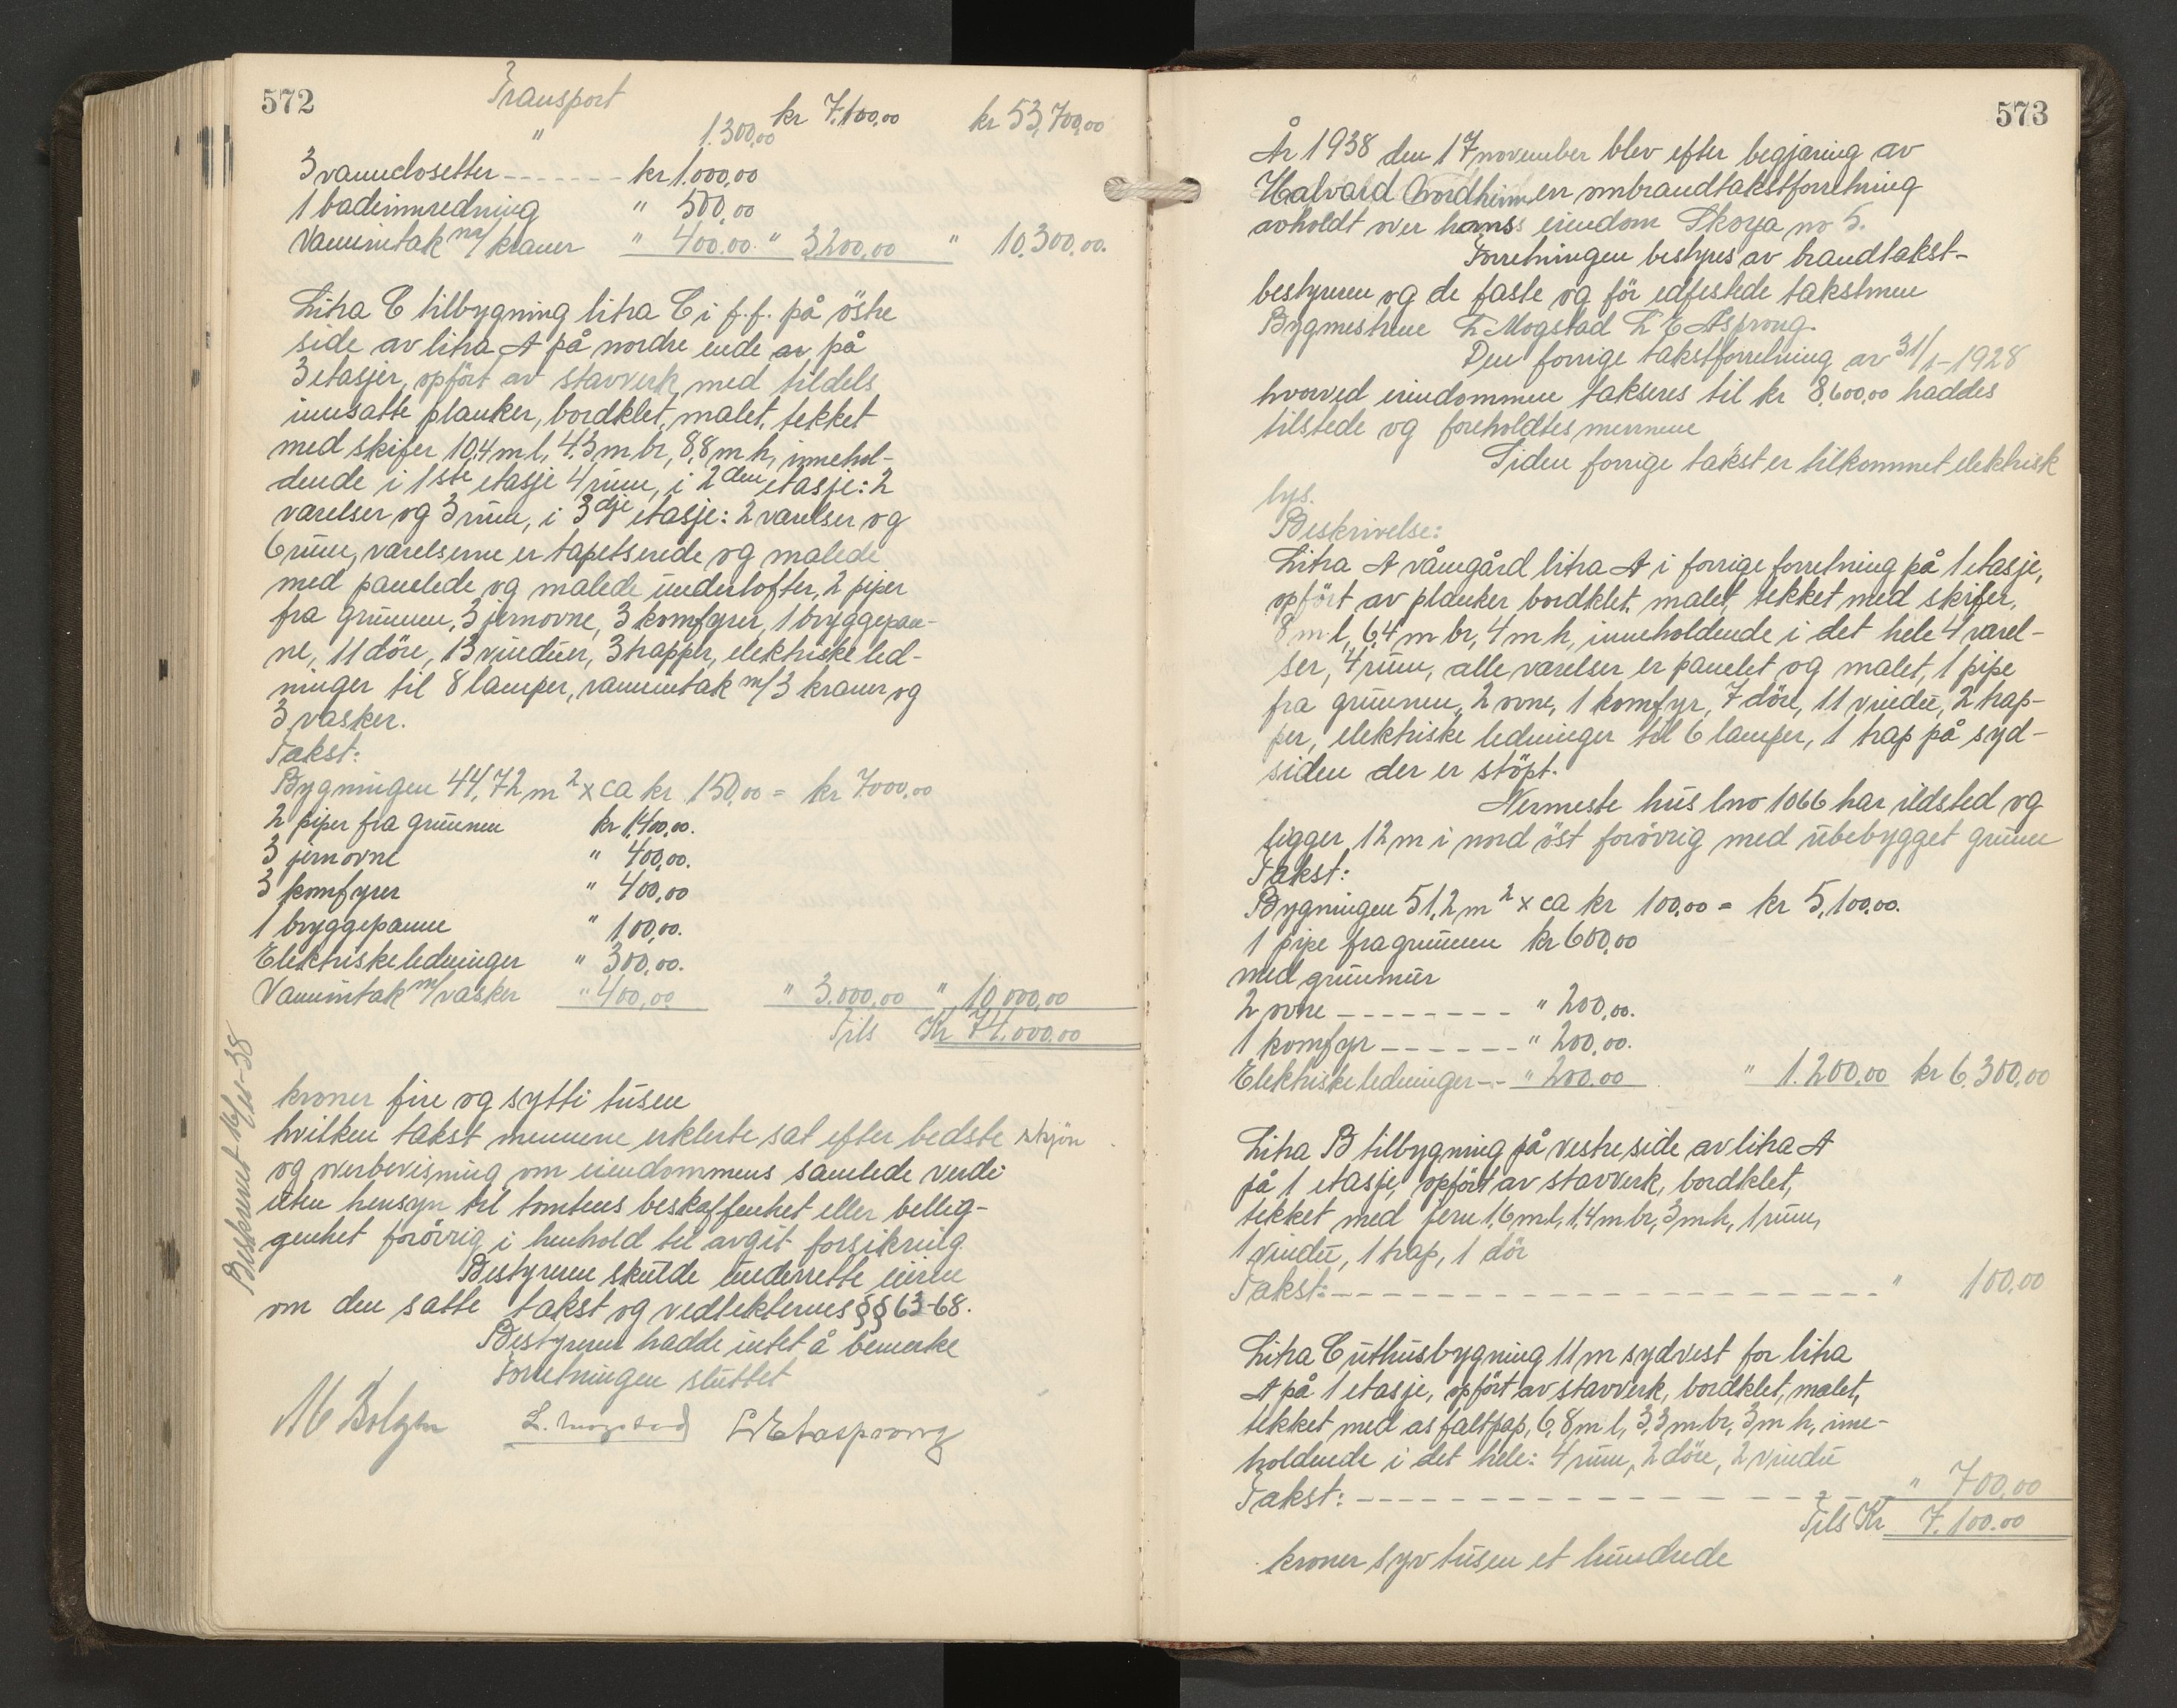 572
Transport kr 7.100,00 kr 53,700,00
" 1.300,00
3 vannclosetter - - - - - - - kr 1.000,00
1 badeinnredning " 500,00
Vanninntak m/ kraner " 400,00. " 3200,00 " 10.300,00.
Litra C tilbygning litra C i f.f. på östre
side av litra A på nordre ende av på
3 etasjer, opfört av stavverk, med tildels
innsatte planker, bordklet, malet, tekket
med skifer 10,4 m l, 4,3 m br, 8,8 m h, innehol-
dende i 1ste etasje 4 rum, i 2den etasje: 2
varelser og 3 rum, i 3dje etasje: 2 varelser og
6 rum, varelserne er tapetserede og malede
med panelede og malede underlofter, 2 piper
fra grunnen, 3 jernovne, 3 komfyrer, 1 bryggepan-
ne, 11 döre, 13 vinduer, 3 trapper, elektriske led-
ninger til 8 lamper, vanninntak m/ 3 kraner og
3 vasker.
Takst:
Bygningen 44,72 m² x ca kr 150,00 = kr 7.000,00
2 piper fra grunnen kr 1,400,00.
3 jernovne " 400,00.
3 komfyrer " 400,00
1 bryggepanne " 100,00.
Elektriske ledninger " 300,00.
Vanninntak m/ vasker " 400,00 " 3.000,00 " 10.000,00
Tils Kr 74.000,00
Beskrevet 16/11-38
kroner fire og sytti tusen
hvilken takst mennene erklerte sat efter bedste skjön
og overbevisning om eiendommens samlede verdi
uten hensyn til tomtens beskaffenhet eller bellig-
genhet forövrig i henhold til avgit forsikring
Bestyreren skulde underrette eieren
om den satte takst og vedtekternes §§ 63-68.
Bestyreren hadde intet å bemerke
Forretningen sluttet
L. Mogstad L E Aasprong
573
År 1938 den 17 november blev efter begjæring av
Halvard Nordheim en ombrandtakstforretning
avholdt over hans eiendom Skorpa no 5.
Forretningen bestyres av brandtakst-
bestyreren og de faste og för edfestede takstmen
Bygmestrene L Mogstad L E Asprong.
Den forrige takstforretning av 31/1-1928
hvorved eiendommen takseres til kr 8,600,00 haddes
tilstede og foreholdtes mennene
Siden forrige takst er tilkommet elektrisk
lys.
Beskrivelse:
Litra A våningård litra A i forrige forretning på 1 etasje,
opfört av planker bordklet, malet, tekket med skifer,
8 m l, 6,4 m br, 4 m h, inneholdende i det hele 4 varel-
ser, 4 rum, alle varelser er panelet og malet, 1 pipe
fra grunnen, 2 ovne, 1 komfyr, 7 döre, 11 vindu, 2 trap-
per, elektriske ledninger til 6 lamper, 1 trap på syd-
siden der er stöpt.
Nermeste hus lno 1066 har ildsted og
ligger 12 m i nord öst forövrig med ubebygget grunn
Takst:
Bygningen 51,2 m² x ca kr 100,00 = kr 5,100,00.
1 pipe fra grunnen kr 600,00
med grunmur
2 ovne - - - - - - - - " 200,00.
1 komfyr - - - - - - " 200,00.
Elektriske ledninger - - " 200,00 " 1.200,00 kr 6.300,00
Litra B tilbygning på vestre side av litra A
på 1 etasje, opfört av stavverk, bordklet,
tekket med jern 1,6 m l, 1,4 m br, 3 m h, 1 rum,
1 vindu, 1 trap, 1 dör
Takst: - - - - - - - - - - - - - - - - - - - " 100,00
Litra C uthusbygning 11 m sydvest for litra
A på 1 etasje, opfört av stavverk, bordklet, malet,
tekket med asfaltpap, 6,8 m l, 3,3 m br, 3 m h, inne-
holdende i det hele: 4 rum, 2 döre, 2 vindu
Takst: - - - - - - - - - - - - - - - - - - - " 700,00
Tils Kr 7.100.00
kroner syv tusen et hundrede